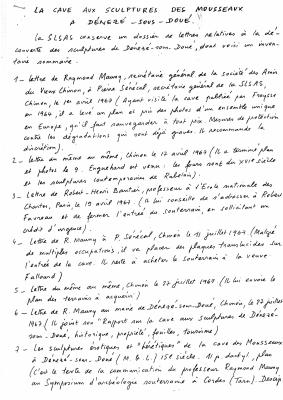 LA CAVE AUX SCULPTURES DES MOUSSEAUX
A DENEZÉ-SOUS-DOUÉ.
La SLSAS conserve un dossier de lettres relatives à la dé-
couverte des sculptures de Dénezé-sous-Doué, dont voici un inven-
taire sommaire.
1 - lettre de Raymond Mauny, secrétaire général de la société des Amis
du Vieux Chinon, à Pierre Sénécal, secrétaire général de la SLSAS,
Chinon, le 1er avril 1967 (Ayant visité la cave publiée par Fraysse
en 1964, il a levé un plan et pris des photos d'un ensemble unique
en Europe, qu'il faut sauvegarder à tout prix. Mesures de protection
contre les dégradations qui sont déjà graves. Il recommande la
discrétion).
2 - lettre du même au même, Chinon le 17 avril 1967 (Il a terminé plan
et photos le 9. Enguehard est venu : les fours sont du XVIe siècle
et les sculptures contemporaines de Rabelais).
3 - lettre de Robert-Henri Bautier, professeur à l'Ecole nationale des
Chartes, Paris, le 19 avril 1967. (Il lui conseille de s'adresser à Robert
Favreau et de fermer l'entrée du souterrain, en sollicitant un
crédit d'urgence).
4 - Lettre de R. Mauny à P. Sénécal, Chinon le 11 juillet 1967 (Malgré
de multiples occupations, il va placer des plaques translucides sur
l'entrée de la cave. Il reste à acheter le souterrain à la veuve
Falloux)
5 - Lettre du même au même, Chinon le 22 juillet 1967 (Il lui envoie le
Plan des terrains à acquérir)
6 - Lettre de R. Mauny au maire de Dénezé-sous-Doué, Chinon, le 22 juillet
1967 (Il joint son "Rapport sur la cave aux Sculptures de Dénezé-
sous-Doué, historique, propriété, fouilles, tourisme)
7 - Les sculptures érotiques et "hérétiques" de la cave des Mousseaux
à Dénezé-sous-Doué (M. & L.) 15e siècle. 11 p. dactyl., plan
(c'est le texte de la communication du professeur Raymond Mauny
au Symposium d'archéologie souterraine à Cordes (Tarn).